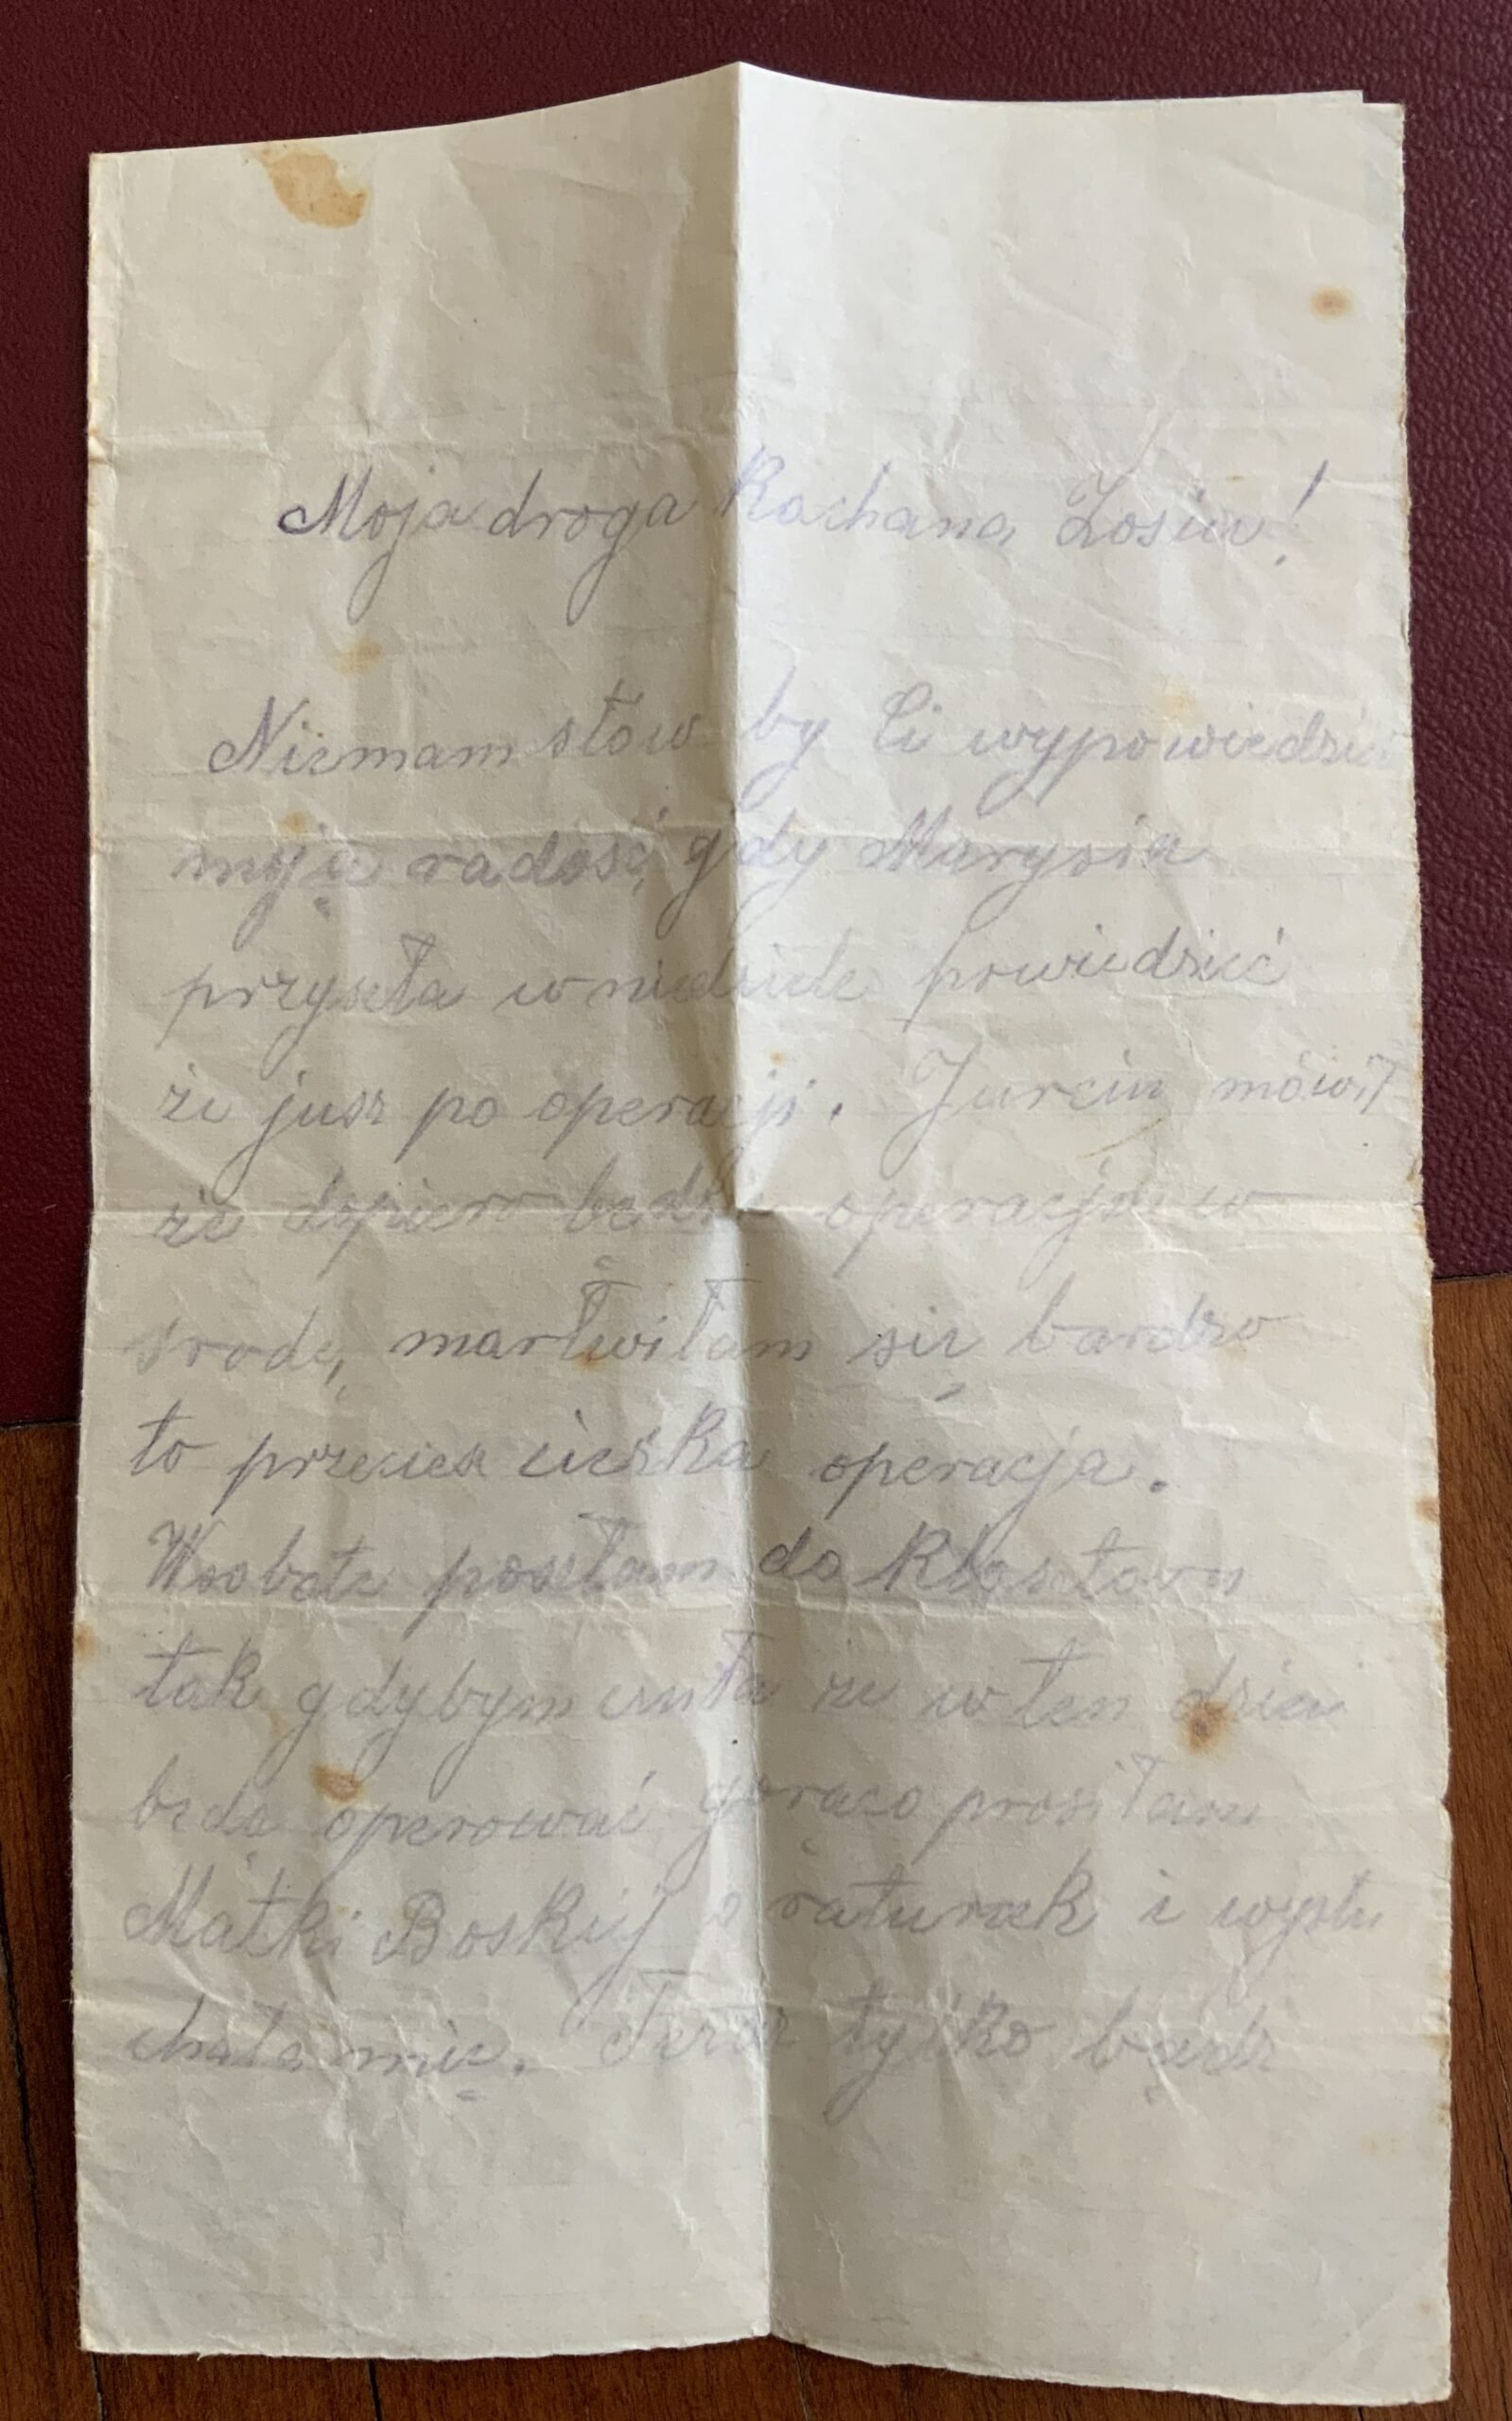 Moja droga Kochana Zosiu!
Niemam słów by Ci wypowiedzieć
moją radość, gdy Marysia
przyszła w niedziele powiedzieć
że jusz po operacji. Jurciu mówił
że dopiero będzie operacja w
środę, martwiłam się bardzo
to przeciesz cieszka operacja.
Wsobote poszłam do Klasztoru
tak gdybym czuła że w ten dzień
będą operować gorąco prosiłam
Matki Boskiej o ratunek i wysłu
chała mię. Teraz tylko bądz